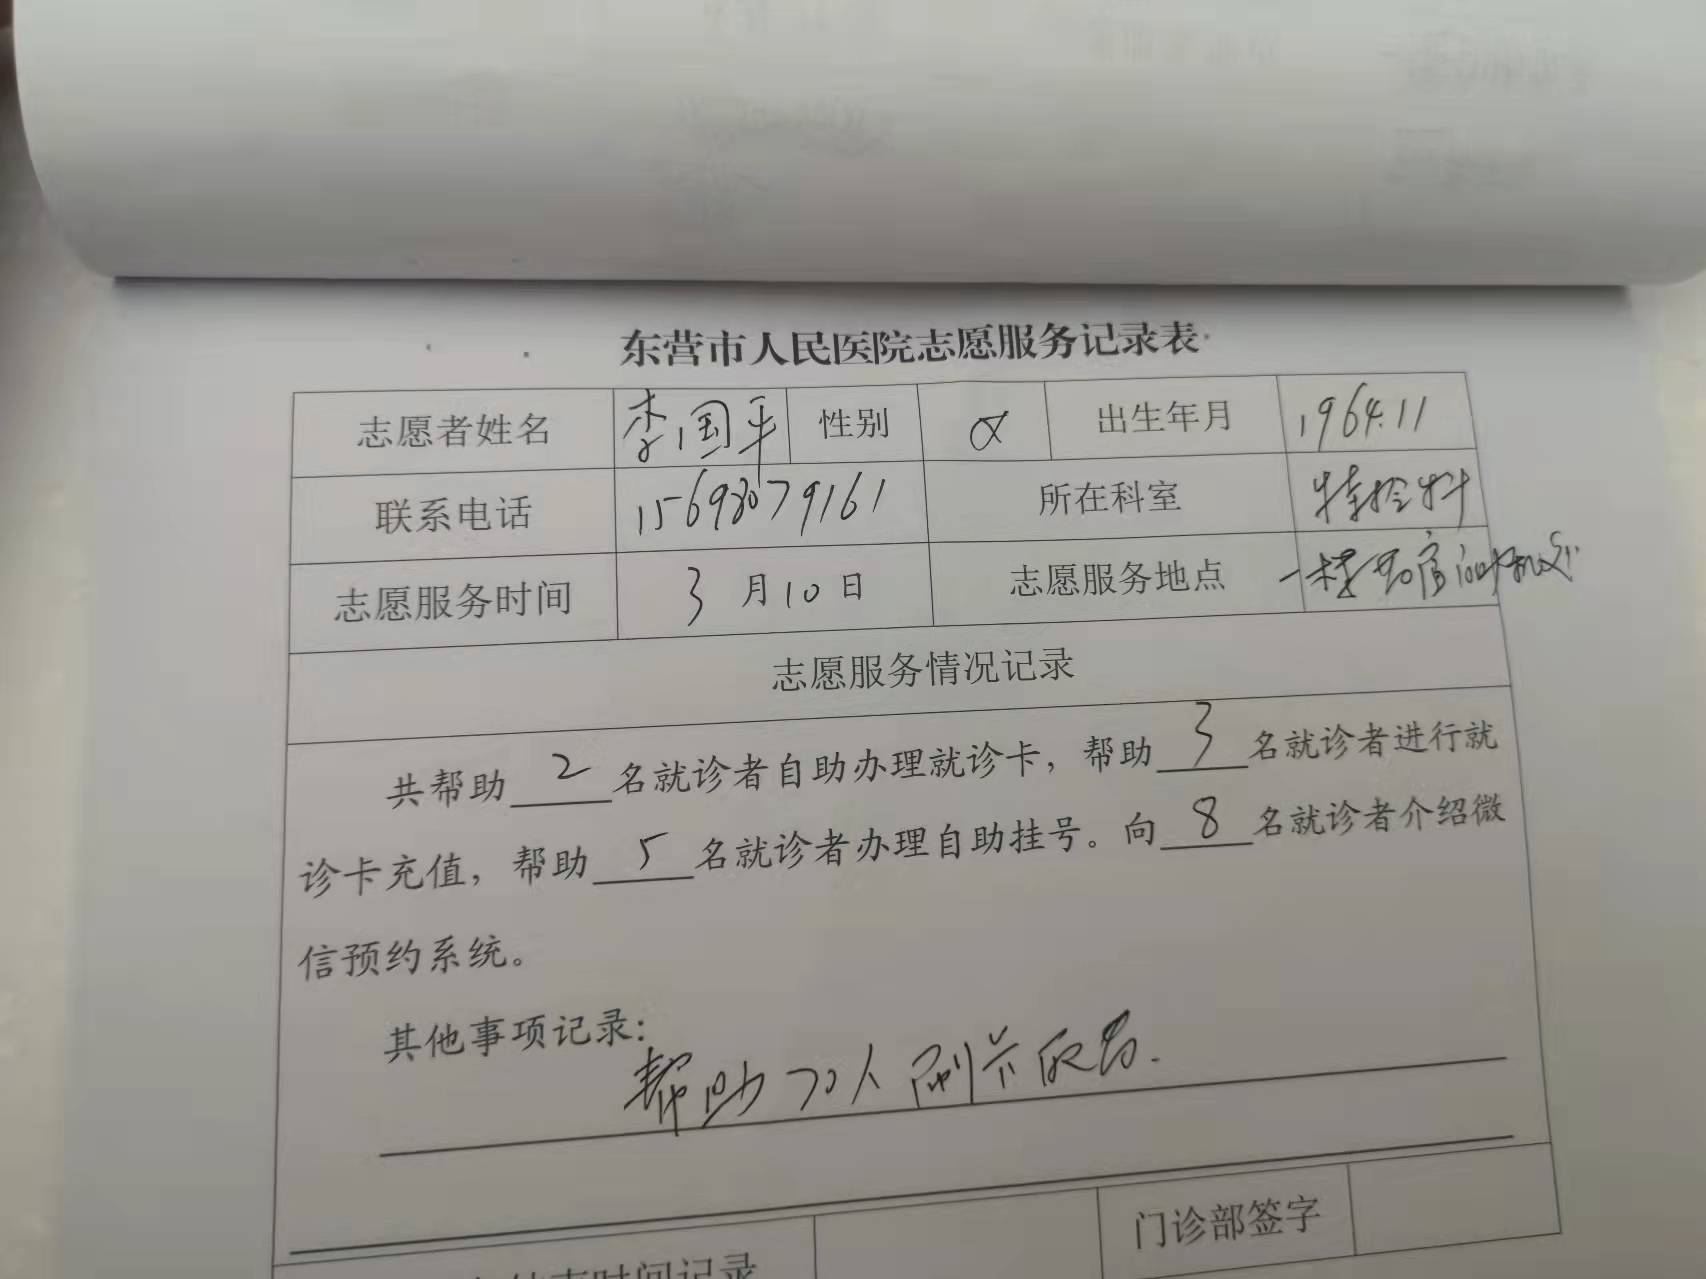 东营市人民医院志愿服务记录表
志愿者姓名 李国平 性别 女 出生年月 1964.11
联系电话 15698079161 所在科室 特检科
志愿服务时间 3月10日 志愿服务地点 一楼
志愿服务情况记录
共帮助2名就诊者自助办理就诊卡，帮助3名就诊者进行就
诊卡充值，帮助5名就诊者办理自助挂号。向8名就诊者介绍微
信预约系统。
其他事项记录：
帮助70人刷卡取号.
门诊部签字
时间记录